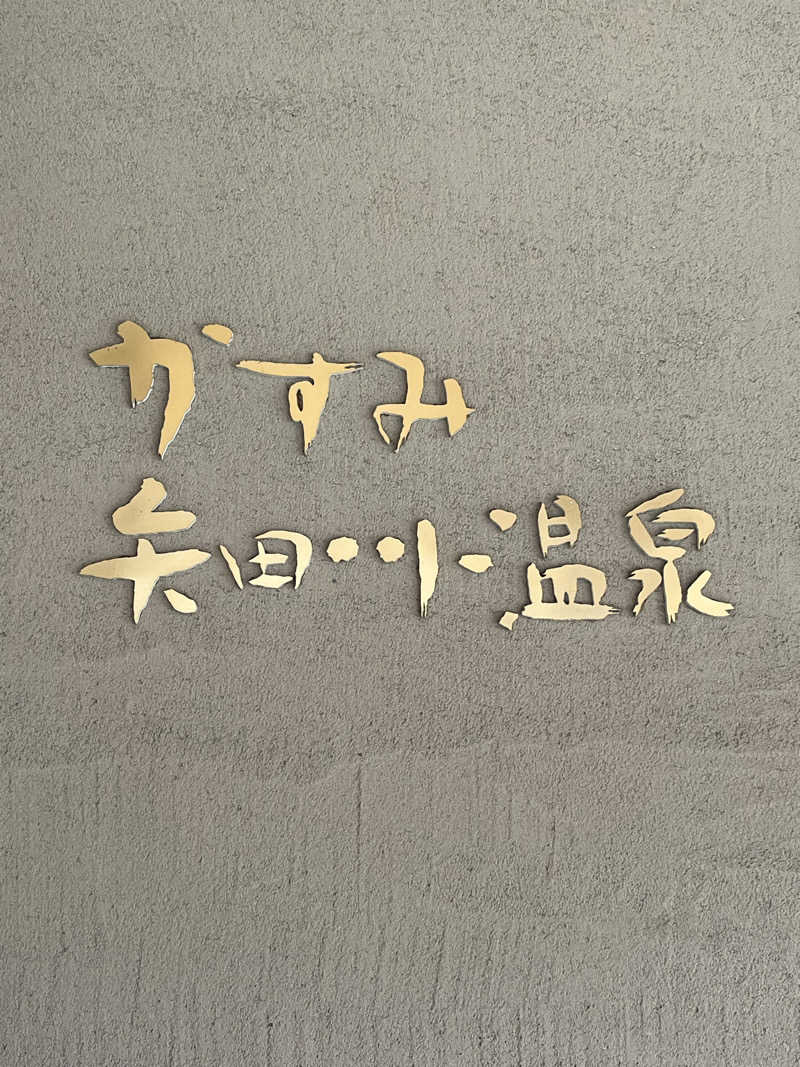 かすみ
矢田川温泉